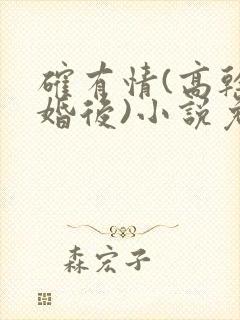 確有情(高幹
婚後)小說
森宏子